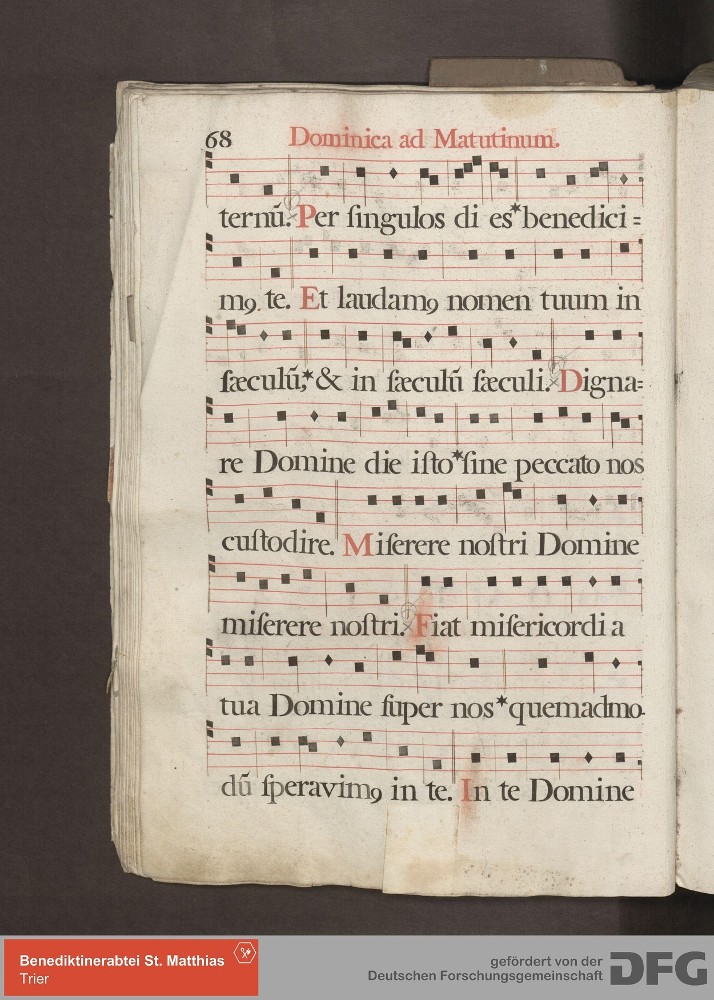 68 Dominica ad Matutinum.
ternũ. Per ſingulos di es*benedici=
mꝯ te. Et laudamꝯ nomen tuum in
ſæculũ,*& in ſæculũ ſæculi. Digna=
re Domine die iſto*ſine peccato nos
cuſtodire. Miſerere noſtri Domine
miſerere noſtri. Fiat miſericordi a
tua Domine ſuper nos*quemadmo-
dũ ſperavimꝯ in te. In te Domine
Benediktinerabtei St. Matthias
Trier
gefördert von der
Deutschen Forschungsgemeinschaft DFG